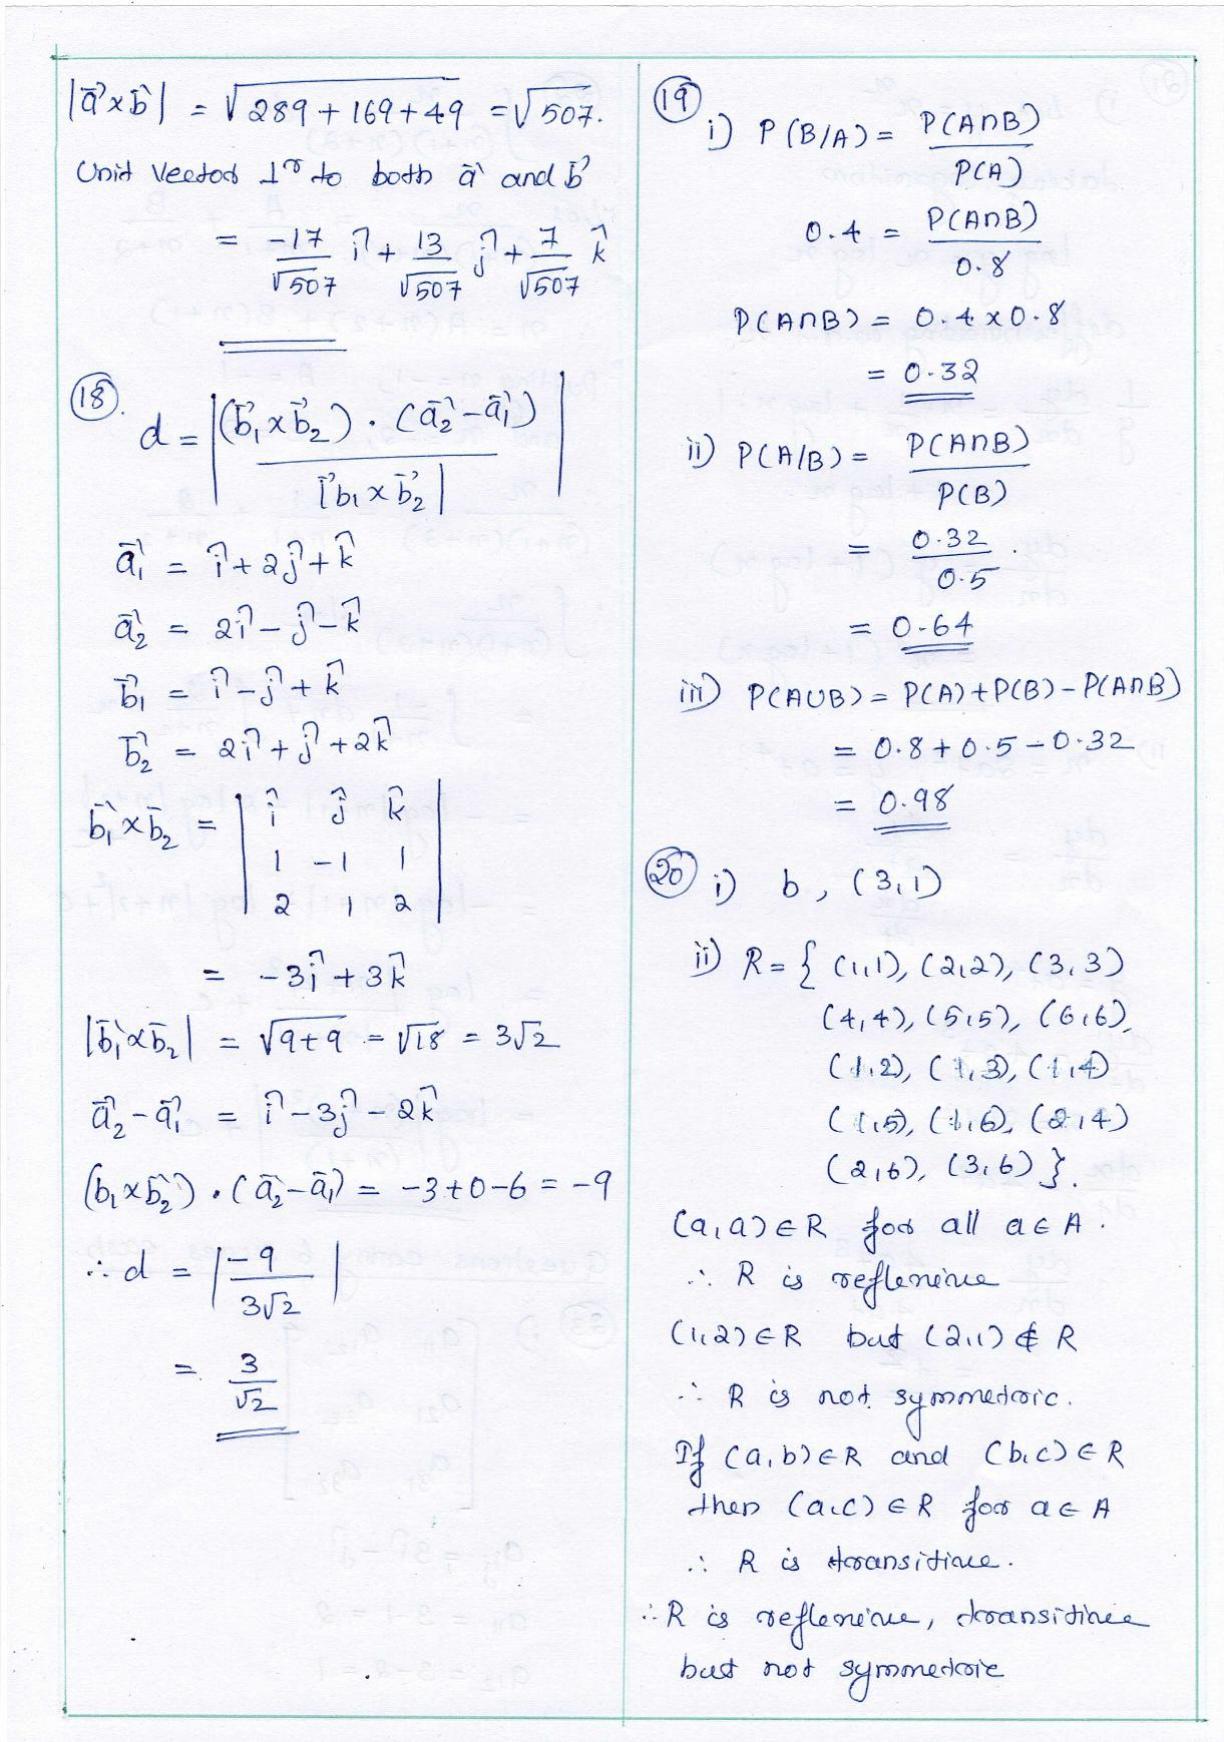 |a⃗ × b⃗| = √289 + 169 + 49 = √507.
Unit Vector ⊥r to both a⃗ and b⃗
= -17/√507 î + 13/√507 ĵ + 7/√507 k̂
(18).
d = |(b⃗₁ × b⃗₂) · (a⃗₂ - a⃗₁) / |b₁ × b⃗₂||
a⃗₁ = î + 2ĵ + k̂
a⃗₂ = 2î - ĵ - k̂
b⃗₁ = î - ĵ + k̂
b⃗₂ = 2î + ĵ + 2k̂
b⃗₁ × b⃗₂ = | î ĵ k̂
1 -1 1
2 1 2 |
= -3î + 3k̂
|b⃗₁ × b⃗₂| = √9+9 = √18 = 3√2
a⃗₂ - a⃗₁ = î - 3ĵ - 2k̂
(b₁ × b⃗₂) · (a⃗₂ - a⃗₁) = -3 + 0 - 6 = -9
∴ d = |-9 / 3√2|
= 3/√2
(19)
i) P(B/A) = P(A∩B) / P(A)
0.4 = P(A∩B) / 0.8
P(A∩B) = 0.4 × 0.8
= 0.32
ii) P(A/B) = P(A∩B) / P(B)
= 0.32 / 0.5 .
= 0.64
iii) P(A∪B) = P(A) + P(B) - P(A∩B)
= 0.8 + 0.5 - 0.32
= 0.98
(20) i) b, (3,1)
ii) R = { (1,1), (2,2), (3,3)
(4,4), (5,5), (6,6),
(1,2), (1,3), (1,4)
(1,5), (1,6), (2,4)
(2,6), (3,6) }.
(a,a) ∈ R for all a ∈ A.
∴ R is reflexive
(1,2) ∈ R but (2,1) ∉ R
∴ R is not symmetric.
If (a,b) ∈ R and (b,c) ∈ R
then (a,c) ∈ R for a ∈ A
∴ R is transitive.
∴ R is reflexive, transitive
but not symmetric